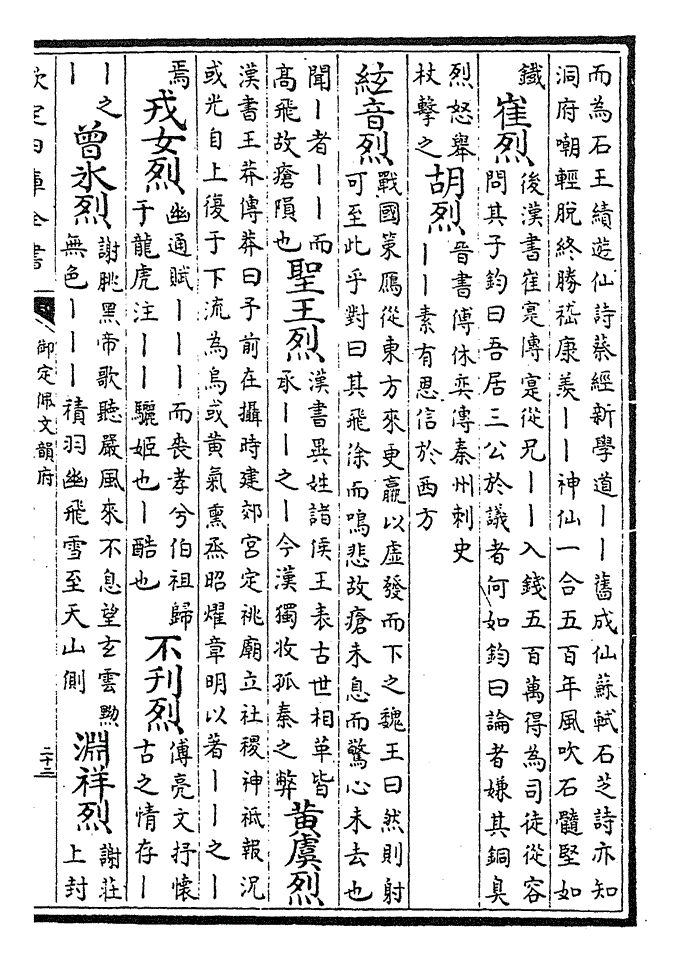 而為石王績遊仙詩蔡經新學道｜｜舊成仙蘇軾石芝詩亦知
洞府嘲輕脫終勝嵇康羨｜｜神仙一合五百年風吹石髓堅如
鐵
崔烈
後漢書崔寔傳寔從兄｜｜入錢五百萬得為司徒從容
問其子鈞曰吾居三公於議者何如鈞曰論者嫌其銅臭
烈怒舉
杖擊之
胡烈
晉書傅休奕傳秦州刺史
｜｜素有恩信於西方
絃音烈
戰國策鴈從東方來更羸以虛發而下之魏王曰然則射
可至此乎對曰其飛徐而鳴悲故瘡未息而驚心未去也
聞｜者｜｜而
高飛故瘡隕也
聖王烈
漢書異姓諸侯王表古世相革皆
承｜｜之｜今漢獨收孤秦之弊
黄虞烈
漢書王莽傳莽曰予前在攝時建郊宮定祧廟立社稷神祗報況
或光自上復于下流為烏或黃氣熏烝昭燿章明以著｜｜之｜
焉
戎女烈
幽通賦｜｜｜而喪孝兮伯祖歸
于龍虎注｜｜驪姬也｜酷也
不刋烈
傅亮文抒懷
古之情存｜
｜之
｜
曾氷烈
謝朓黑帝歌聽嚴風來不息望玄雲黝
無色｜｜｜積羽幽飛雪至天山側
淵祥烈
謝莊
上封
欽定四庫全書
御定佩文韻府
二十三